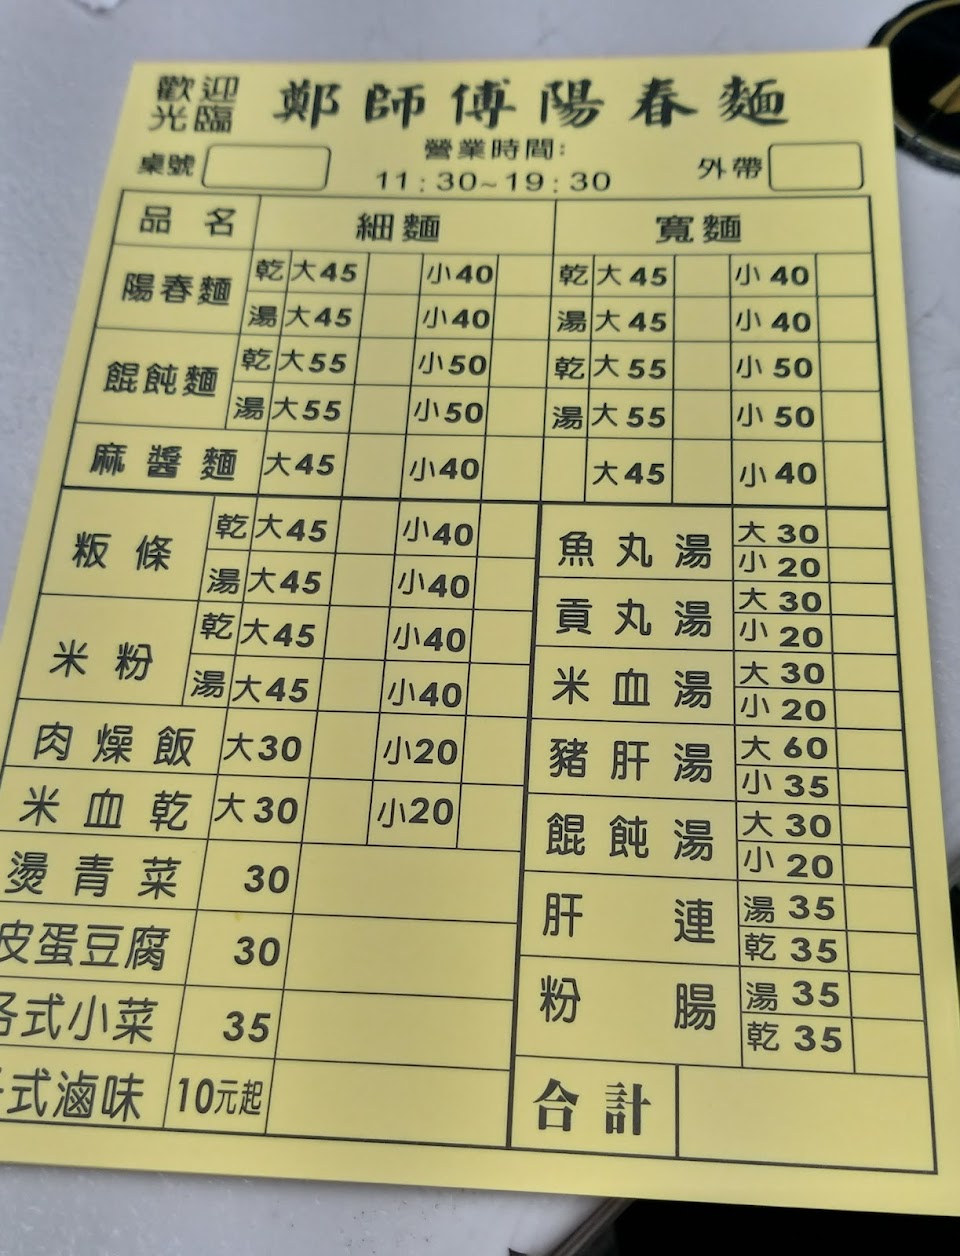 歡迎光臨 鄭師傅陽春麵
桌號 營業時間: 外帶
11:30~19:30
品名 細麵 寬麵
陽春麵 乾 大45 小40 乾 大45 小40
湯 大45 小40 湯 大45 小40
餛飩麵 乾 大55 小50 乾 大55 小50
湯 大55 小50 湯 大55 小50
麻醬麵 大45 小40 大45 小40
粄條 乾 大45 小40
湯 大45 小40
米粉 乾 大45 小40
湯 大45 小40
肉燥飯 大30 小20
米血乾 大30 小20
燙青菜 30
皮蛋豆腐 30
各式小菜 35
式滷味 10元起
魚丸湯 大30
小20
貢丸湯 大30
小20
米血湯 大30
小20
豬肝湯 大60
小35
餛飩湯 大30
小20
肝連 湯35
乾35
粉腸 湯35
乾35
合計